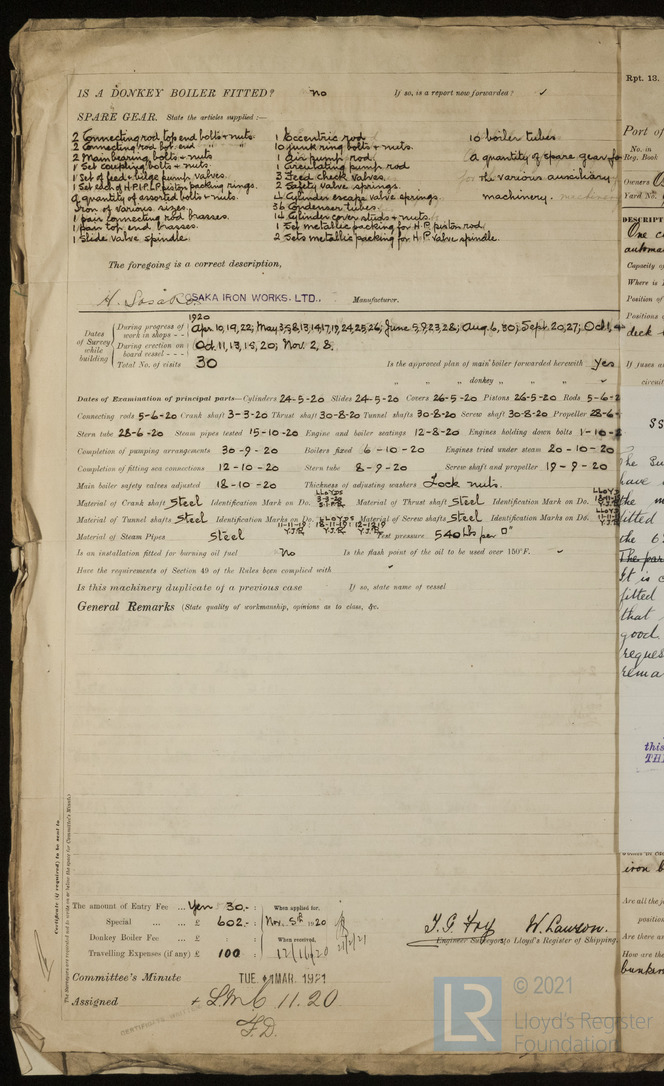 IS A DONKEY BOILER FITTED? No If so, is a report now forwarded? ✓
SPARE GEAR. State the articles supplied :—
2 Connecting rod top end bolts & nuts. 1 Eccentric rod 10 boiler tubes
2 Connecting rod bot. end " " 10 junk ring bolts & nuts. a quantity of spare gear fo
2 Main bearing bolts & nuts 1 Air pump rod the various auxiliary
1 Set coupling bolts & nuts. 1 Circulating pump rod machinery.
1 Set of feed & bilge pump valves. 3 Feed check valves.
1 Set each of H.P. I.P. L.P. piston packing rings. 2 Safety valve springs.
A quantity of assorted bolts & nuts. 4 Cylinder escape valve springs.
Iron of various sizes. 36 Condenser tubes.
1 pair connecting rod brasses. 14 Cylinder cover studs & nuts.
1 pair top end brasses. 1 Set metallic packing for H.P. piston rod
1 Slide valve spindle. 2 Sets metallic packing for H.P. valve spindle.
The foregoing is a correct description,
OSAKA IRON WORKS. LTD., Manufacturer.
1920
Dates of Survey while building
During progress of work in shops - - Apr. 10, 19, 22; May 3, 5, 8, 13, 14, 17, 19, 24, 25, 26; June 5, 9, 23, 28; Aug. 6, 30; Sept. 20, 27; Oct. 1, 4
During erection on board vessel - - - Oct. 11, 13, 15, 20; Nov. 2, 8.
Total No. of visits 30 Is the approved plan of main boiler forwarded herewith Yes
" " " donkey " " "
Dates of Examination of principal parts—Cylinders 24-5-20 Slides 24-5-20 Covers 26-5-20 Pistons 26-5-20 Rods 5-6-2
Connecting rods 5-6-20 Crank shaft 3-3-20 Thrust shaft 30-8-20 Tunnel shafts 30-8-20 Screw shaft 30-8-20 Propeller 28-6-
Stern tube 28-6-20 Steam pipes tested 15-10-20 Engine and boiler seatings 12-8-20 Engines holding down bolts 1-10-2
Completion of pumping arrangements 30-9-20 Boilers fixed 6-10-20 Engines tried under steam 20-10-20
Completion of fitting sea connections 12-10-20 Stern tube 8-9-20 Screw shaft and propeller 19-9-20
Main boiler safety valves adjusted 18-10-20 Thickness of adjusting washers Lock nuts.
Material of Crank shaft Steel Identification Mark on Do. LLOYDS 3-3-20 Material of Thrust shaft Steel Identification Mark on Do. LLOYDS
Material of Tunnel shafts Steel Identification Marks on Do. LLOYDS Material of Screw shafts Steel Identification Marks on Do.
Material of Steam Pipes Steel Test pressure 540 lbs per □"
Is an installation fitted for burning oil fuel No Is the flash point of the oil to be used over 150°F.
Have the requirements of Section 49 of the Rules been complied with
Is this machinery duplicate of a previous case If so, state name of vessel
General Remarks (State quality of workmanship, opinions as to class, &c.
The amount of Entry Fee ... Yen 30.- : When applied for,
Special ... ... £ 602.- : Nov. 5th 1920
Donkey Boiler Fee ... £ : : When received,
Travelling Expenses (if any) £ 100 12/11/20 21/2/21
Engineer Surveyors to Lloyd's Register of Shipping.
W. Lawson.
Committee's Minute TUE 1 MAR. 1921
Assigned + L.M.C. 11.20
F.D.
Certificate (if required) to be sent to
The Surveyors are requested not to write on or below the space for Committee's Minute.
Rpt. 13.
Port of
No. in
Reg. Book
Owners
Yard No.
DESCRIPT
One c
automa
Capacity of
Where is
Position of
Positions
deck
If fuses
circuit
have
the m
fitted
the 6
It is c
fitted
that
good.
reques
rema
this
TH
iron b
Are all the j
position
Are there
How are the
bunkers
LR
© 2021
Lloyd's Register
Foundation